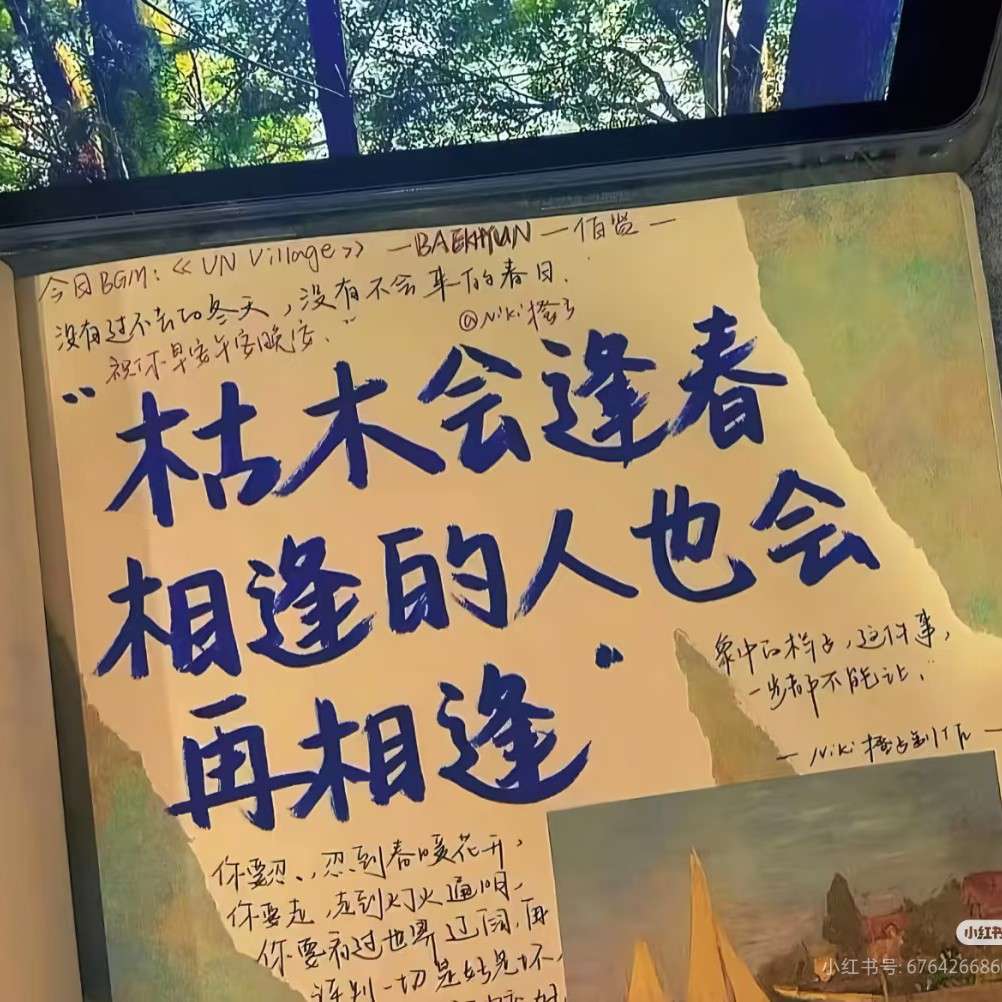 今日BGM:《UN Village》—BAEKHYUN—伯贤—
没有过不去的冬天,没有不会来的春日.
祝你早安午安晚安." @Niki橙子
"枯木会逢春
相逢的人也会
再相逢"
象中的样子,这件事,
一步都不能让."
—Niki橙子制作—
你要忍、忍到春暖花开,
你要走,走到灯火通明,
你要看过世界辽阔,再
评判一切是好是坏,
小红书
小红书号: 676426686